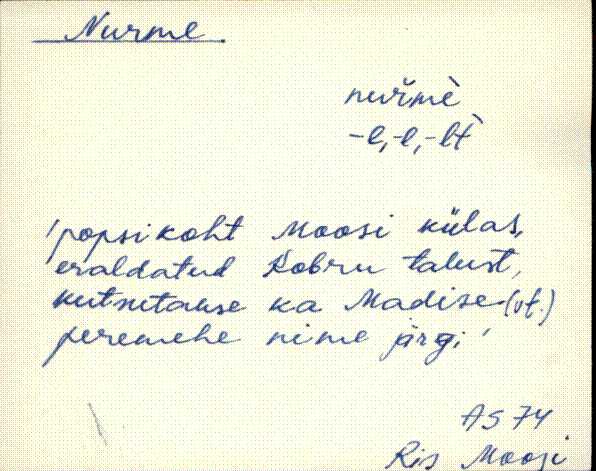 Nurme.
nuřmè
-e, -e, -lt̀
'popsikoht Moosi külas,
eraldatud Kobru talust,
kutsutakse ka Madise (vt.)
peremehe nime järgi'
AS 74
Ris Moosi